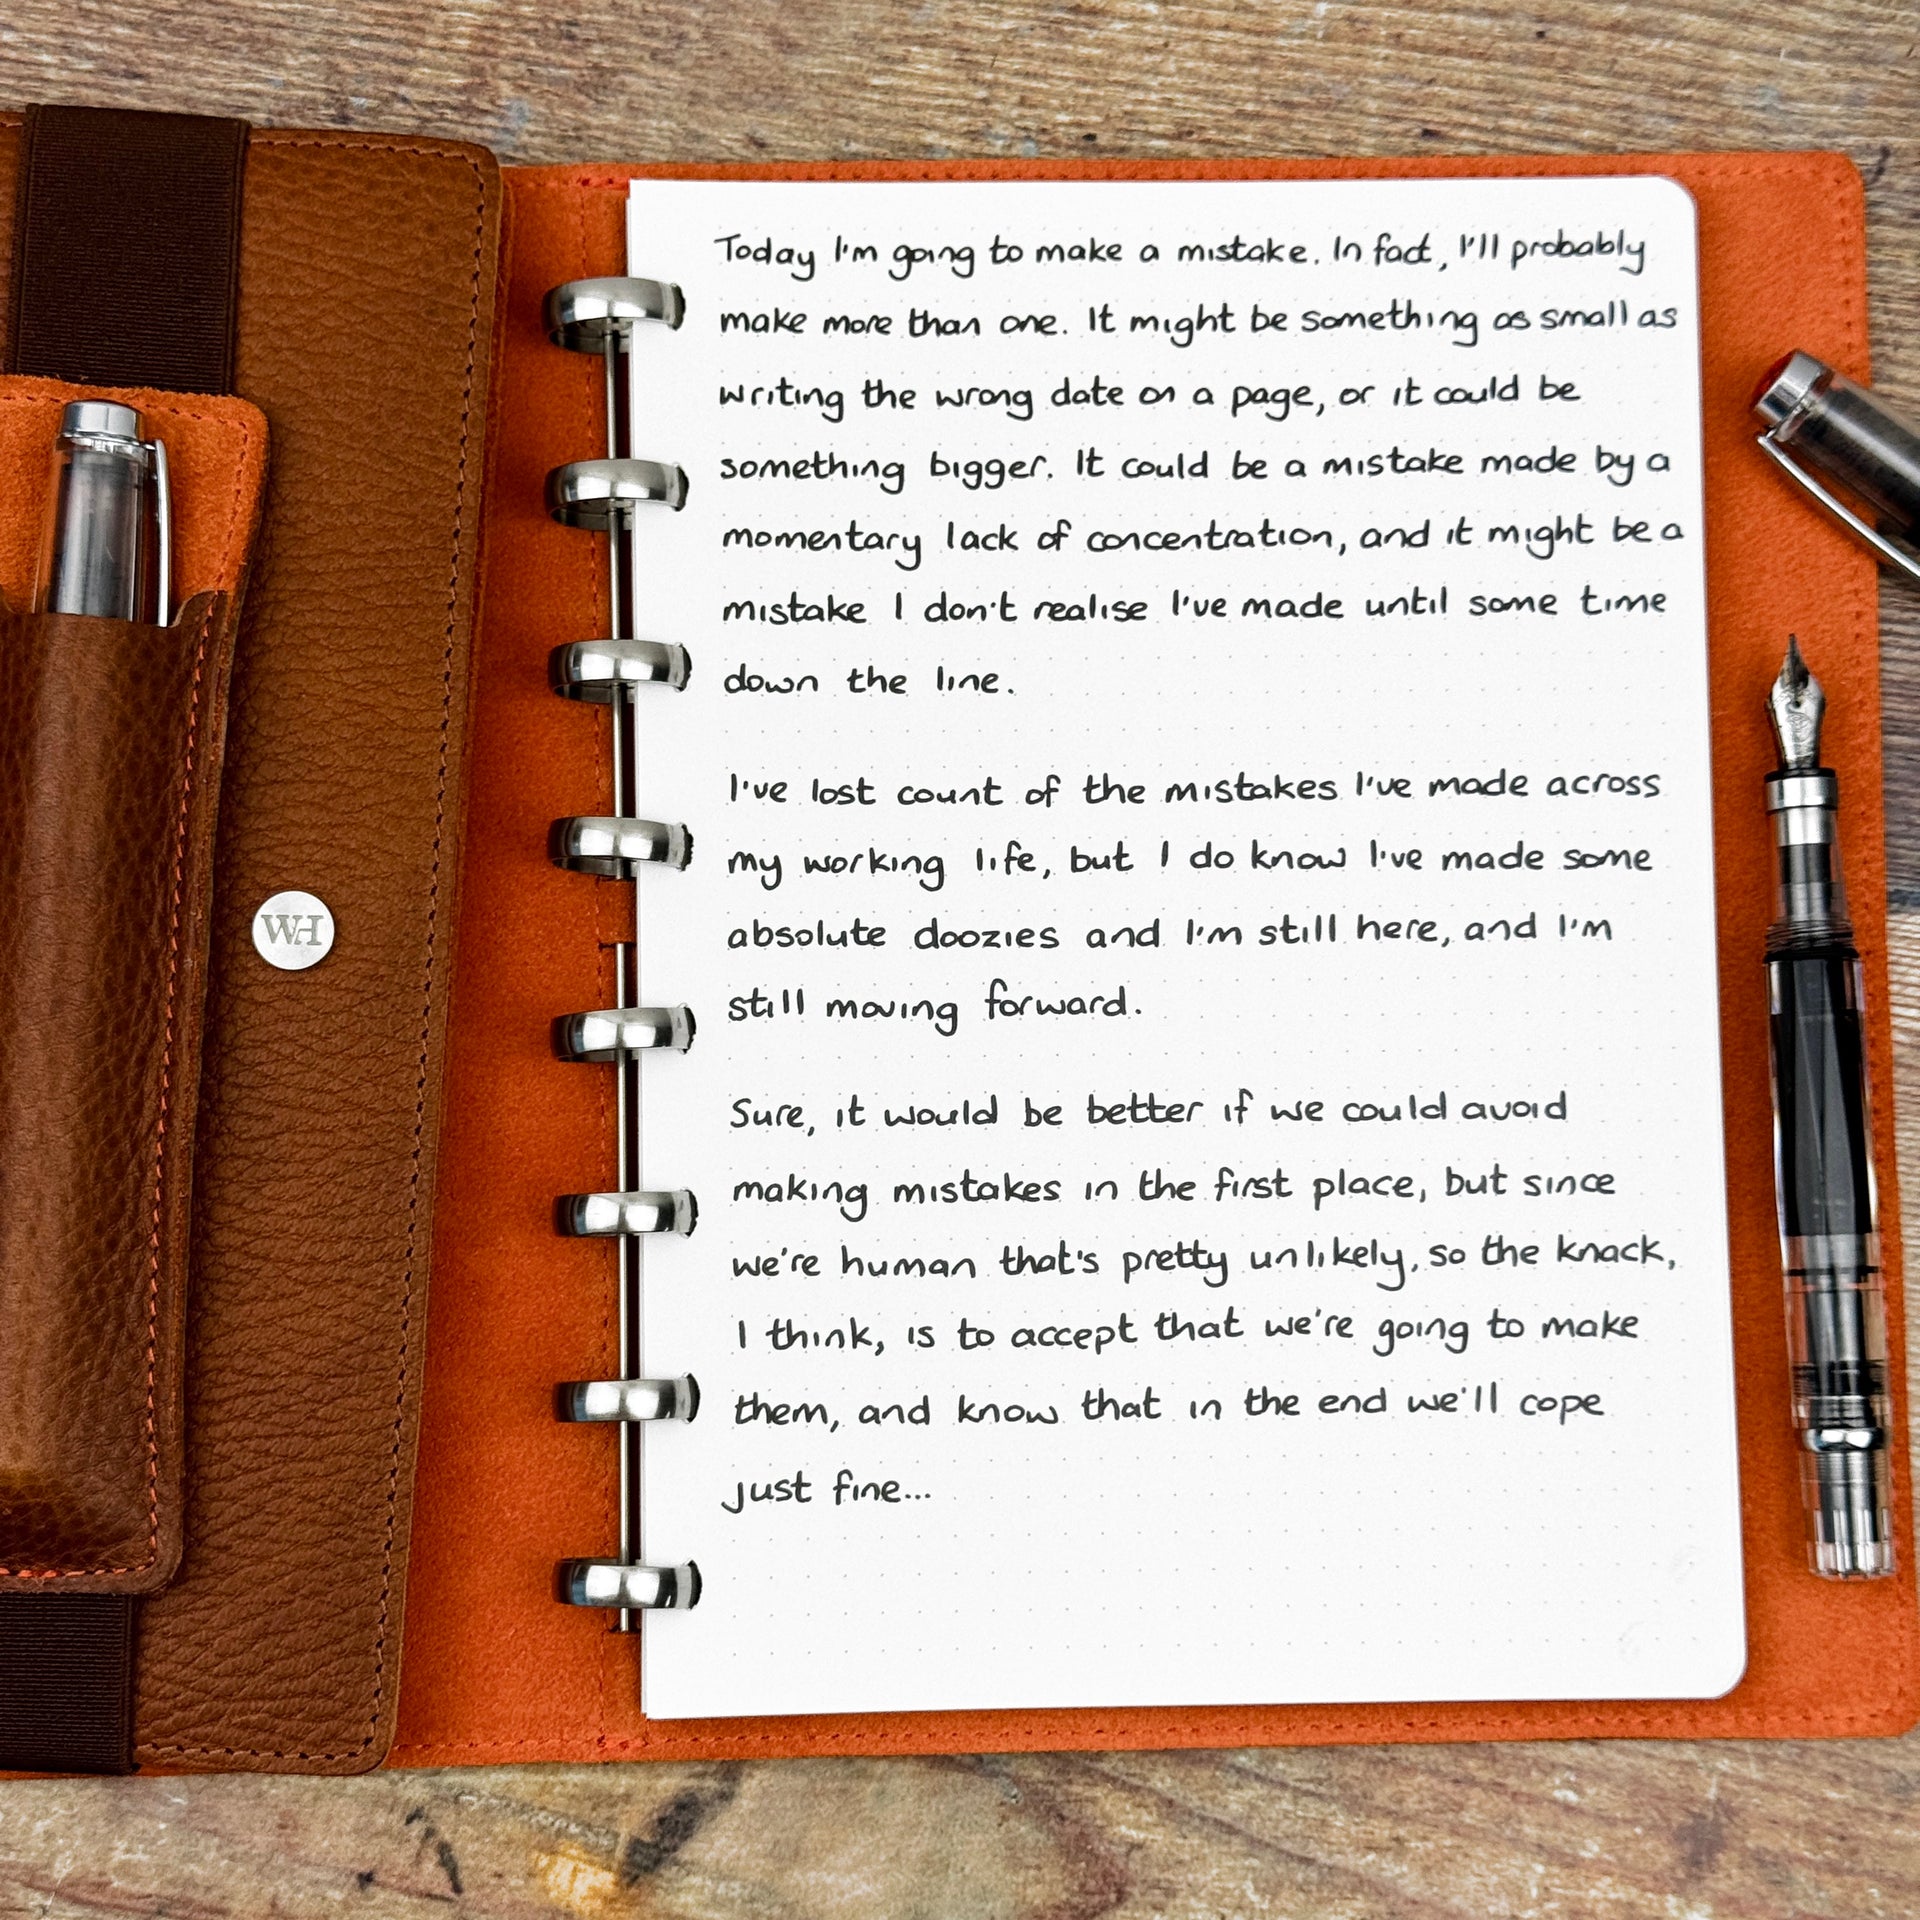 Today I'm going to make a mistake. In fact, I'll probably
make more than one. It might be something as small as
writing the wrong date on a page, or it could be
something bigger. It could be a mistake made by a
momentary lack of concentration, and it might be a
mistake I don't realise I've made until some time
down the line.
I've lost count of the mistakes I've made across
my working life, but I do know I've made some
absolute doozies and I'm still here, and I'm
still moving forward.
Sure, it would be better if we could avoid
making mistakes in the first place, but since
we're human that's pretty unlikely, so the knack,
I think, is to accept that we're going to make
them, and know that in the end we'll cope
just fine...
WH